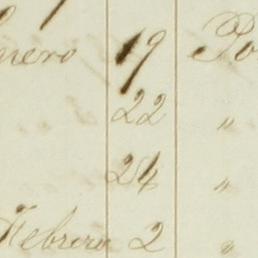 nero 19 Po
22 "
24 "
Febrero 2 "